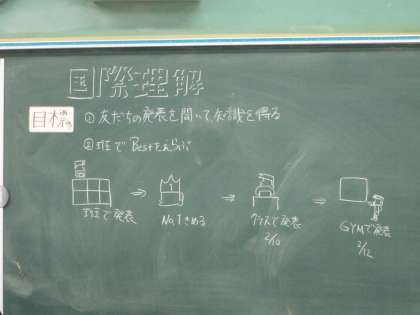 国際理解
目標 ①友だちの発表を聞いて知識を得る
②班でBestをえらぶ
班で発表 ⇒ No.1きめる ⇒ クラスで発表 2/10 ⇒ GYMで発表 2/12
1